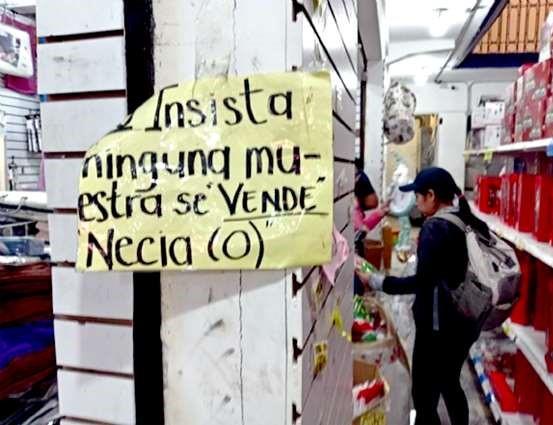 Insista
ninguna mu-
estra se "VENDE"
"Necia (O)"